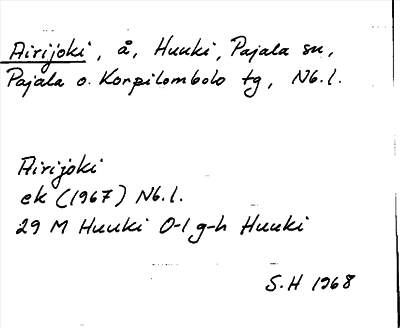 Airijoki, å, Huuki, Pajala sn,
Pajala o. Korpilombolo tg, Nb.l.
Airijoki
ek (1967) Nb.l.
29 M Huuki 0-1 g-h Huuki
S.H 1968